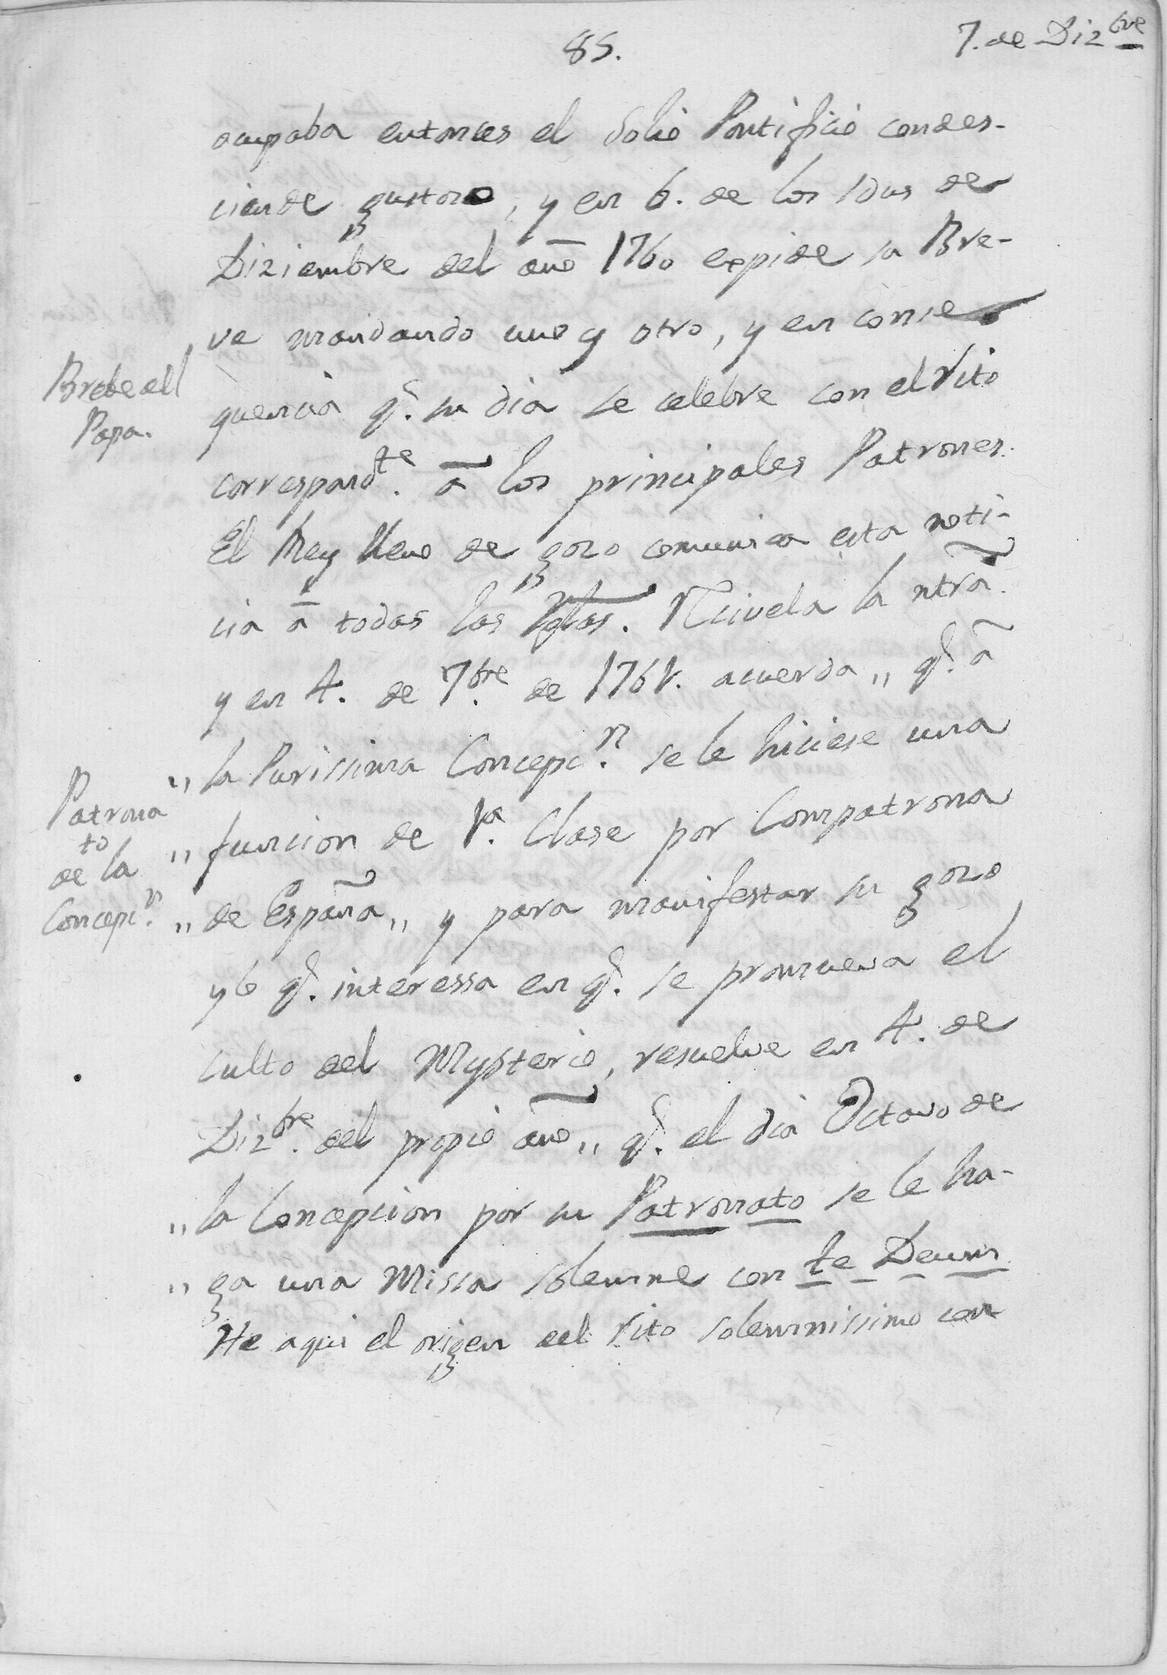 85.
7. de Diz.bre
ocupaba entonces el Solio Pontificio condes-
ciende gustoso, y en 6. de los Idus de
Diziembre del año 1760 expide su Bre-
ve mandando uno y otro, y en conse
Brebe del
Papa.
quencia q.e su dia se celebre con el rito
correspond.te à los principales Patrones.
El Rey lleno de gozo comunica esta noti-
cia à todas las Iglas. Recivela la ntrã.
y en 4. de 7.bre de 1761. acuerda „ q.e à
„ la Purissima Concepc.n se le hiciese una
Patrona
to
de la
Concepc.n
„ funcion de 1.a Clase por Compatrona
„ de España „ y para manifestar su gozo
y lo q.e interessa en q.e se promueva el
culto del Mysterio, resuelve en 4. de
Diz.bre del propio año „ q.e el dia Octavo de
„ la Concepcion por su Patronato se le ha-
„ ga una Missa solemne con te Deum
He aqui el origen del rito solemnissimo con